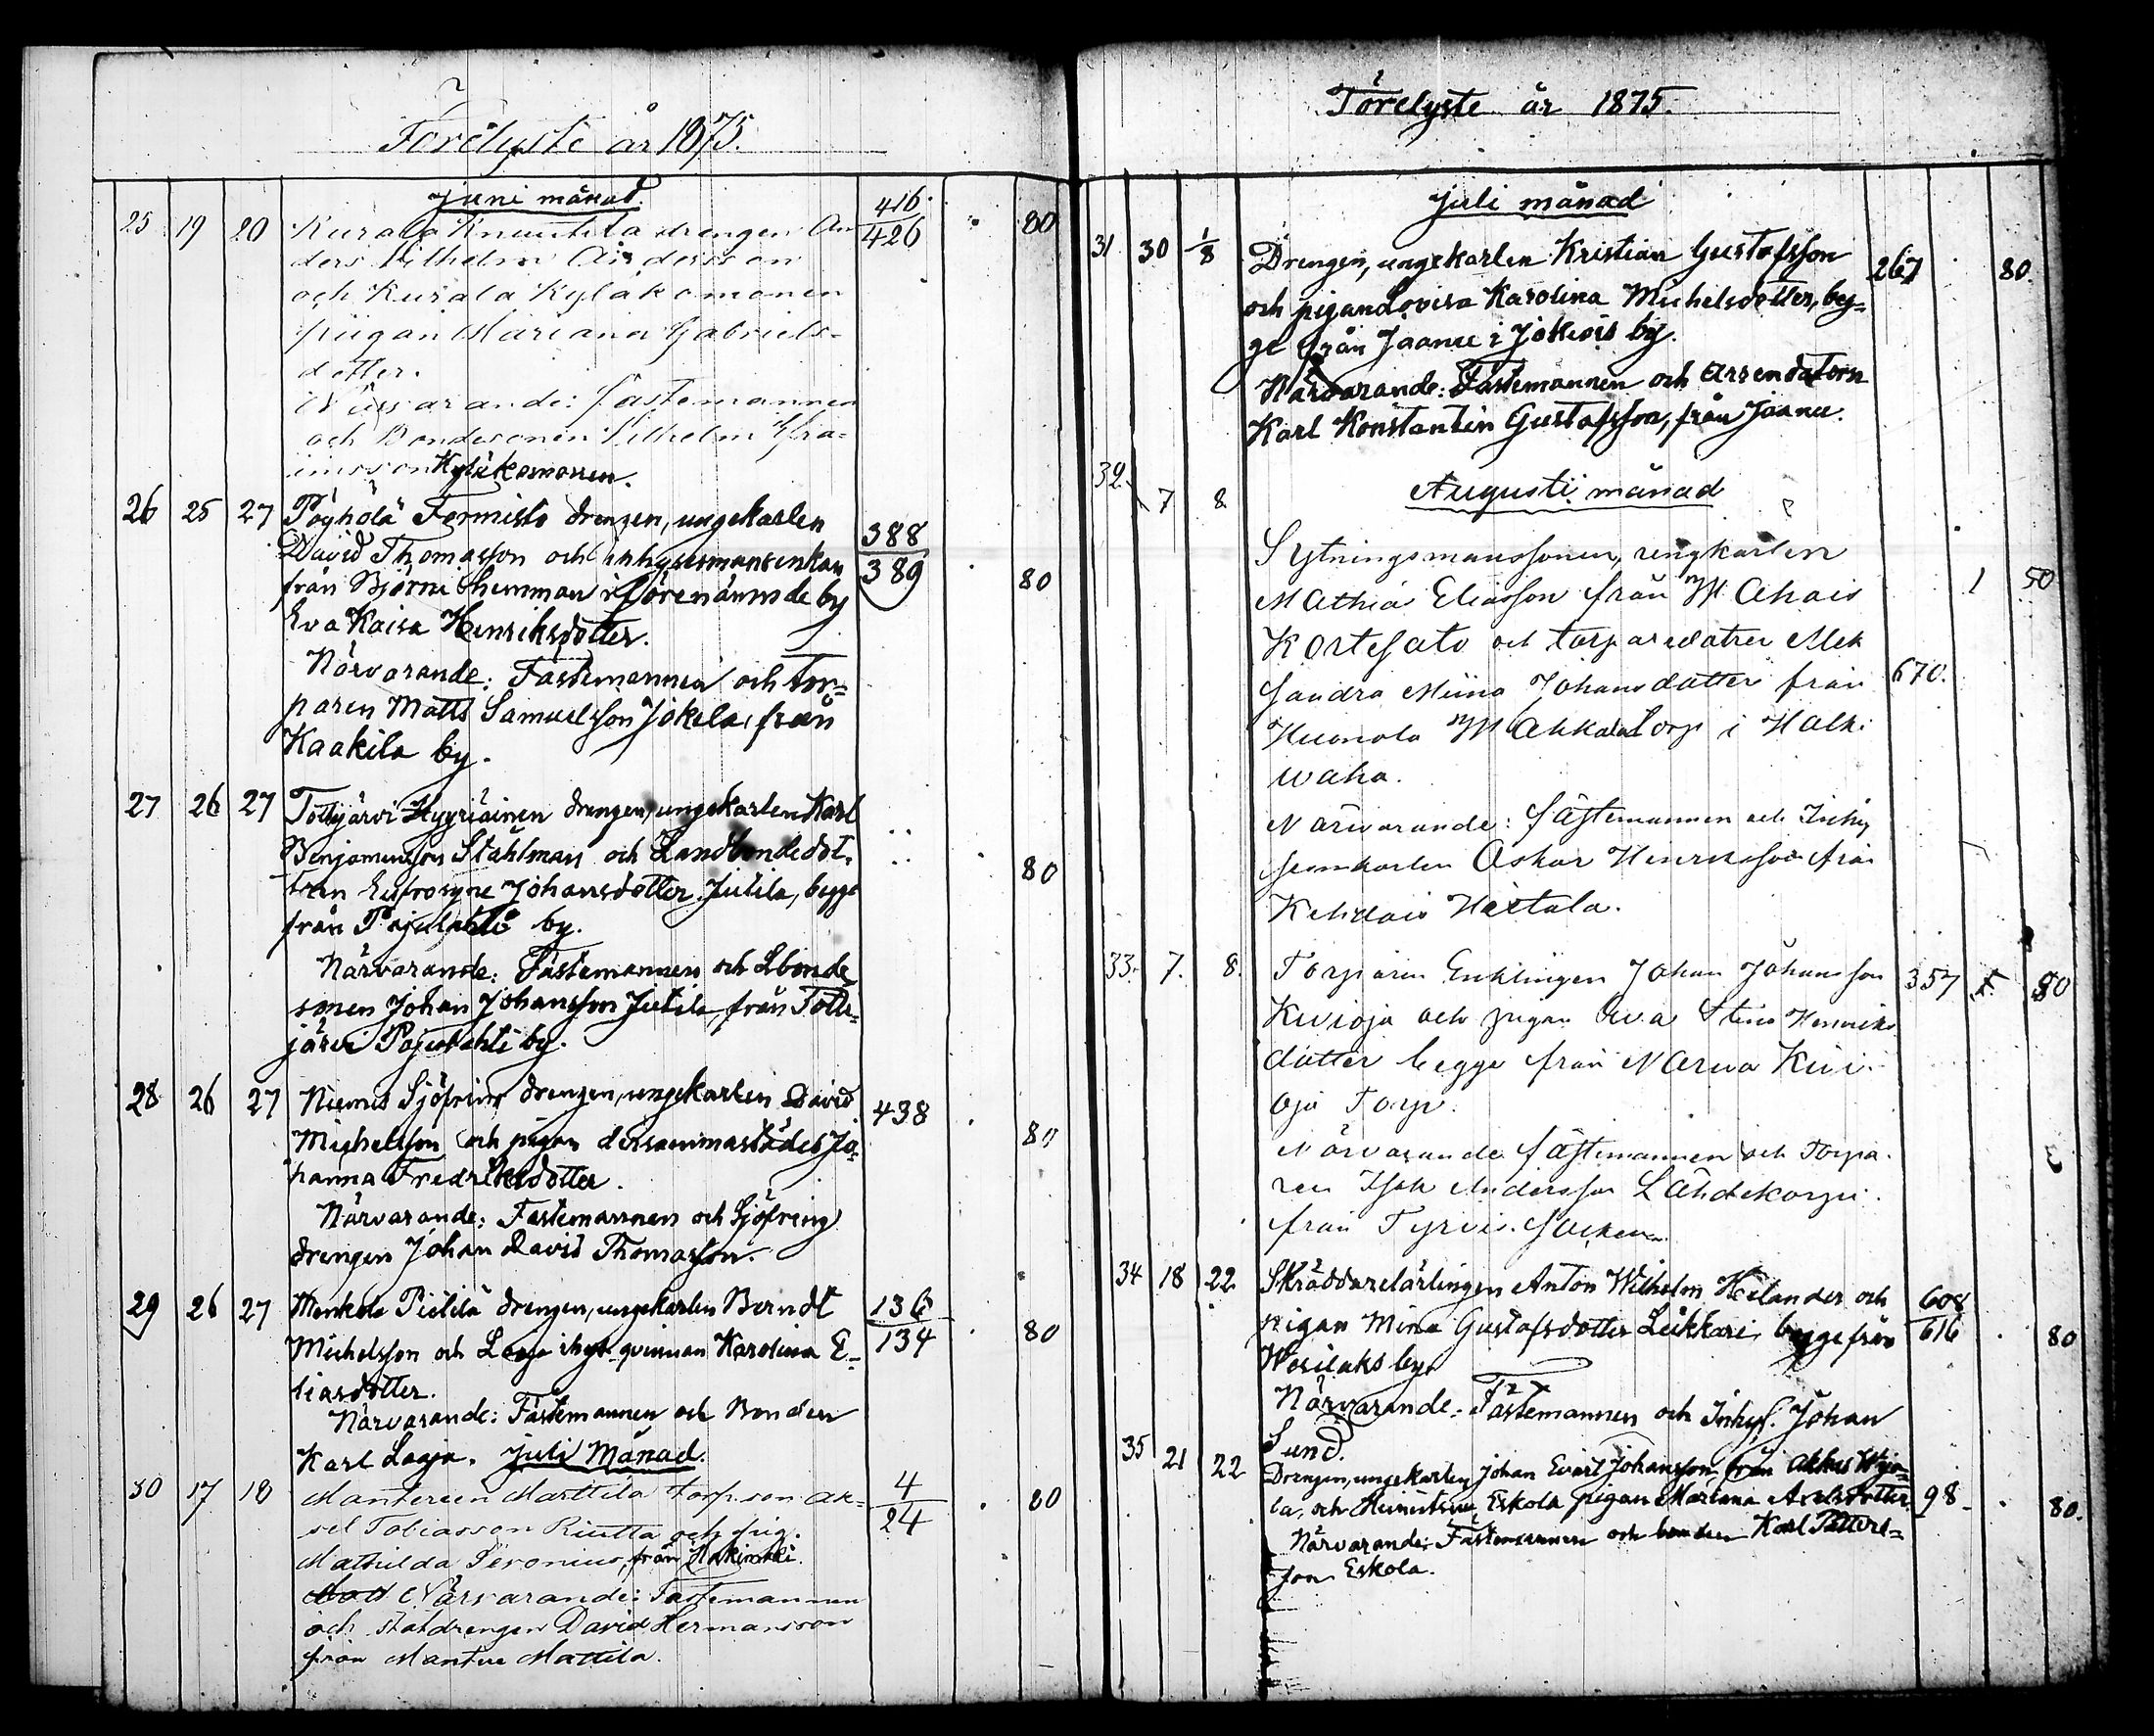 Förelyste år 1875.
juni månad.
25 19 20 Kurala Knuutila drengen An- 416/426 . 80
ders Vilhelm Andersson
och Kurala Kyläkomonen
piigan Mariana Gabriels-
dotter.
Närvarande: fästemannen
och Bondesonen Vilhelm Efra-
imsson Kyläkomonen.
26 25 27 Pöyhölä Formisto drengen, ungekarlen 388/389 . 80
David Thomasson och inhysesmansenkan
från Björni hemman i förenämnde by
Eva Kaisa Henriksdotter.
Närvarande: Fästemannen och tor-
paren Matts Samuelsson Jokela, från
Kaakila by.
27 26 27 Tottijärvi Hyyriäinen drengen, ungekarlen Karl . 80
Benjaminsson Ståhlman och Landbondedot-
tren Eufrosyne Johansdotter Jutila, begge
från Pajulahti by.
Närvarande: Fästemannen och Lbonde
sonen Johan Johansson Jutila, från Totti-
järvi Pajulahti by.
28 26 27 Niemis Sjöfring drengen, ungekarlen David 438 . 80
Michelsson och pigan dersammastädes Jo-
hanna Fredriksdotter.
Närvarande: Fästemannen och Sjöfring
drengen Johan David Thomasson.
29 26 27 Menkola Pietilä drengen, ungekarlen Berndt 136/134 . 80
Michelsson och Laga ihys-qvinnan Karolina E-
liasdotter.
Närvarande: Fästemannen och Bonden
Karl Laga. juli Månad.
30 17 18 Manteren Marttila torp.son Ak- 4/24 . 80
sel Tobiasson Riutta och pig.
Mathilda Seronius, från
Närvarande: Fästemannen
och statdrengen David Hermansson
från Mantere Mattila.
Förelyste år 1875.
juli månad
31 30 1/8 Drengen, ungekarlen Kristian Gustafsson 267 . 80.
och pigan Lovisa Karolina Michelsdotter, beg-
ge från Jaanu i Jokisis by.
Närvarande: Fästemannen och Arrendatorn
Karl Konstantin Gustafsson, från Jaanu.
Augusti månad
32. 7 8 Sytningsmanssonen, ungkarlen 670. 1 50
Mathia Eliasson från Ahais
Kortesato och torparedotren Alek
sandra Miina Johansdotter från
Huonola torp i Halki
waha.
Närvarande: fästemannen och Inhy
seskarlen Oskar Henriksson från
Kehdais Heitala.
33. 7. 8. Torparen Enklingen Johan Johansson 357 1. 50
Kivioja och pigan Eva Stina Henriks
dotter begge från Narva Kivi-
oja Torp.
Närvarande fästemannen och Torpa-
ren Isak Andersson Lähdekorpi
från Tyrvis Socken.
34 18 22 Skräddarelärlingen Anton Wilhelm Helander och 608/616 . 80
pigan Mina Gustafsdotter Leikkari, begge från
Wesilaks by.
Närvarande: Fästemannen och Inhys. Johan
Sund.
35 21 22 Drengen, ungekarlen Johan Evart Johansson från 98 . 80.
la, och Eskola pigan Mariana Axelsdotter
Närvarande: Fästemannen och bonden Karl Petters-
son Eskola.